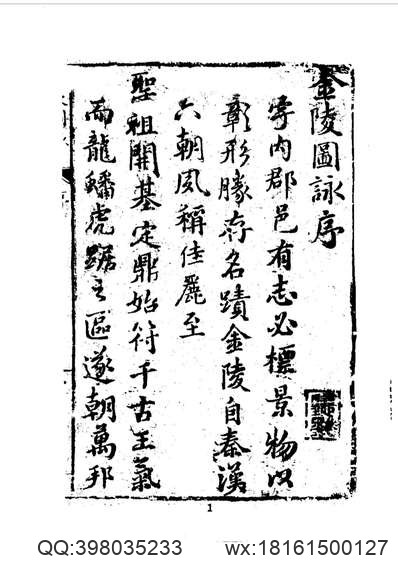 金陵圖詠序
寰內郡邑有志必標景物以
彰形勝存名蹟金陵自秦漢
六朝夙稱佳麗至
聖祖開基定鼎始符千古王氣
而龍蟠虎踞之區遂朝萬邦
1
QQ:398035233 wx:18161500127